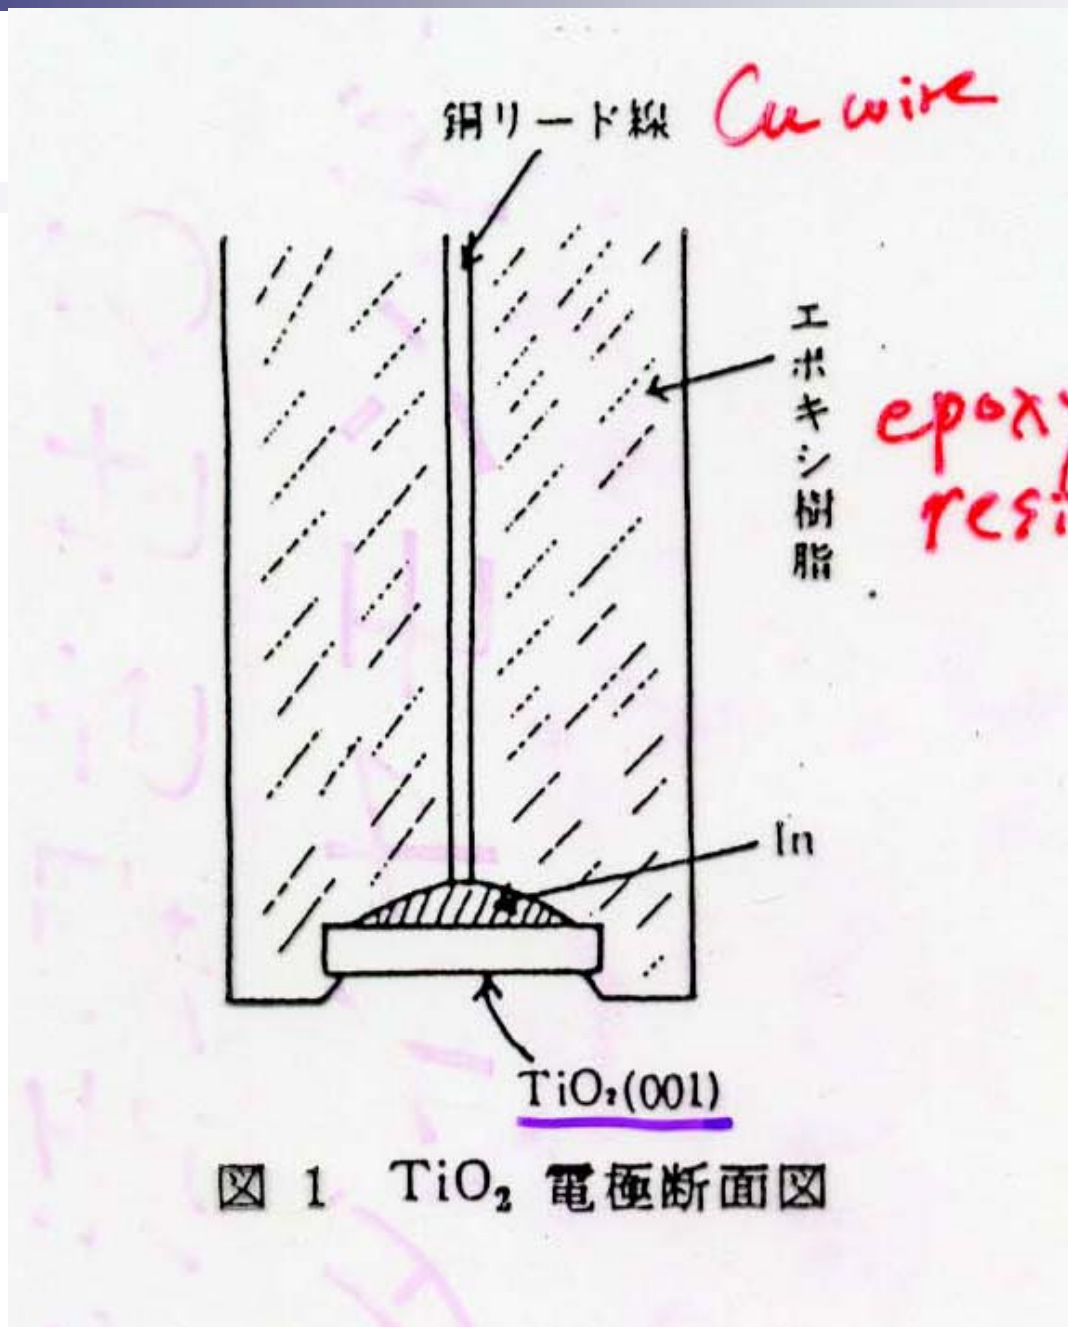 銅リード線 Cu wire
エポキシ樹脂
epoxy
resi
In
TiO₂(001)
図 1 TiO₂ 電極断面図